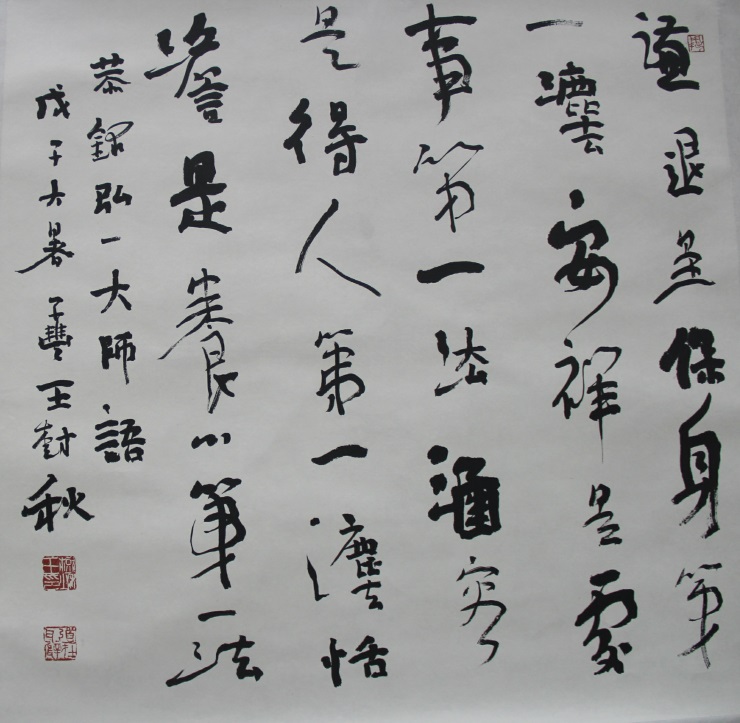 謙退是保身第
一灋安祥是處
事第一法涵容
是得人第一灋恬
澹是養心第一法
恭錄弘一大師語
戊子大暑子豐王秋